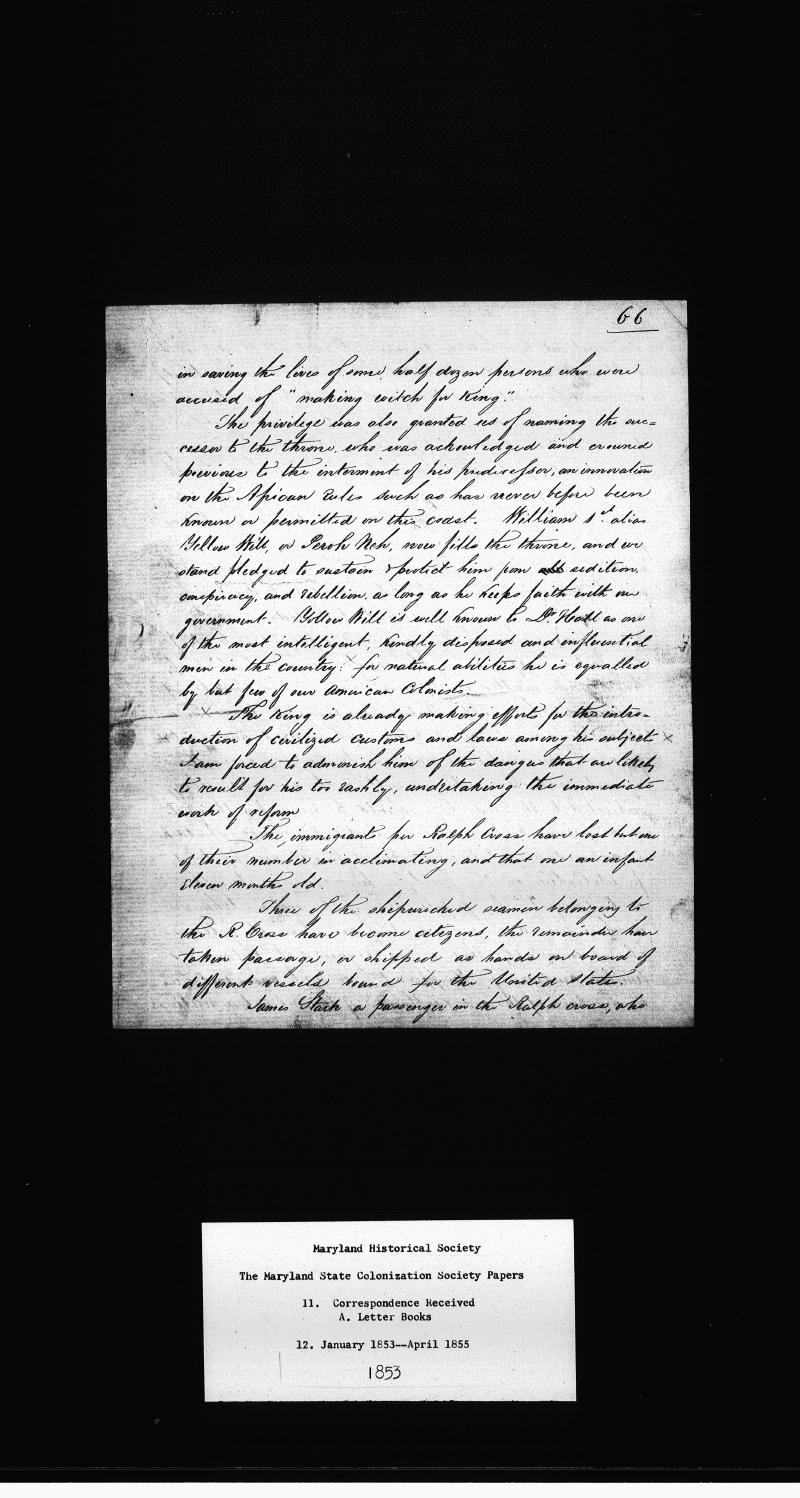 66
in saving the lives of some half dozen persons who were
accused of "making witch for King."
The privilege was also granted us of naming the suc=
cessor to the throne, who was acknowledged and crowned
previous to the interment of his predecessor, an innovation
on the African rules such as has never before been
known or permitted on this coast. William 1st. alias
Yellow Will, or Neh, now fills the throne, and we
stand pledged to sustain & protect him from all sedition,
conspiracy, and rebellion, as long as he keeps faith with our
government. Yellow Will is well known to Dr. Hall as one
of the most intelligent, kindly disposed and influential
men in the country: for natural abilities he is equalled
by but few of our American Colonists.
× The King is already making efforts for the intro-
duction of civilized customs and laws among his subjects ×
I am forced to admonish him of the dangers that are likely
to result for his too rashly, undertaking the immediate
work of reform
The immigrants per Ralph Cross have lost but one
of their number in acclimating, and that one an infant
Eleven months old.
Three of the shipwrecked seamen belonging to
the R. Cross have become citizens, the remainder have
taken passage, or shipped as hands on board of
different vessels bound for the United States.
James Stark a passenger in the Ralph cross, who
Maryland Historical Society
The Maryland State Colonization Society Papers
11. Correspondence Received
A. Letter Books
12. January 1853--April 1855
1853